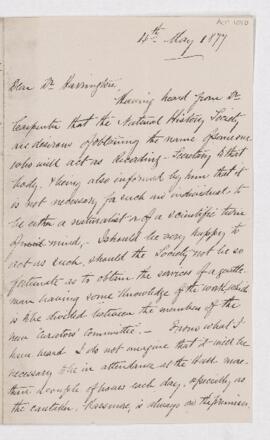 4th May 1877
Dear Dr. Harrington,
Having heard from Dr
Carpenter that the Natural History Society
are desirous of obtaining the name of someone
who will act as Recording-Secretary to that
body, & being also informed by him that it
is not necessary for such an individual to
be either a naturalist or of a scientific turn
of mind, - I should be very happy to
act as such, should the Society not be so
fortunate as to obtain the services of a gentle
man having some knowledge of the work which
is to be divided between the members of the
new Curators' Committee. - From what I
have heard I do not imagine that it will be
necessary to be in attendance at the Hall more
than a couple of hours each day, especially as
the caretaker, Passmore, is always on the premises,